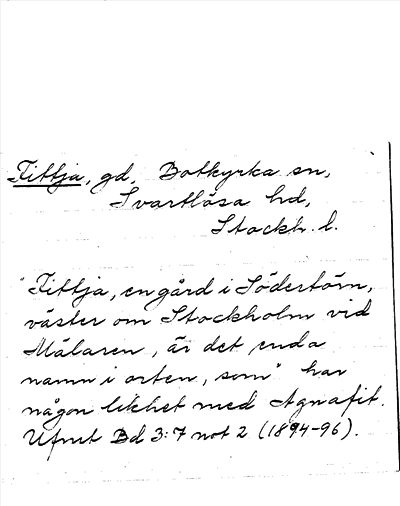 Fittja, gd, Botkyrka sn,
Svartlösa hd,
Stockh. l.
"Fittja, en gård i Södertörn,
väster om Stockholm vid
Mälaren, är det enda
namn i orten, som" har
någon likhet med Agnafit.
Ufmt Bd 3:7 not 2 (1894-96).